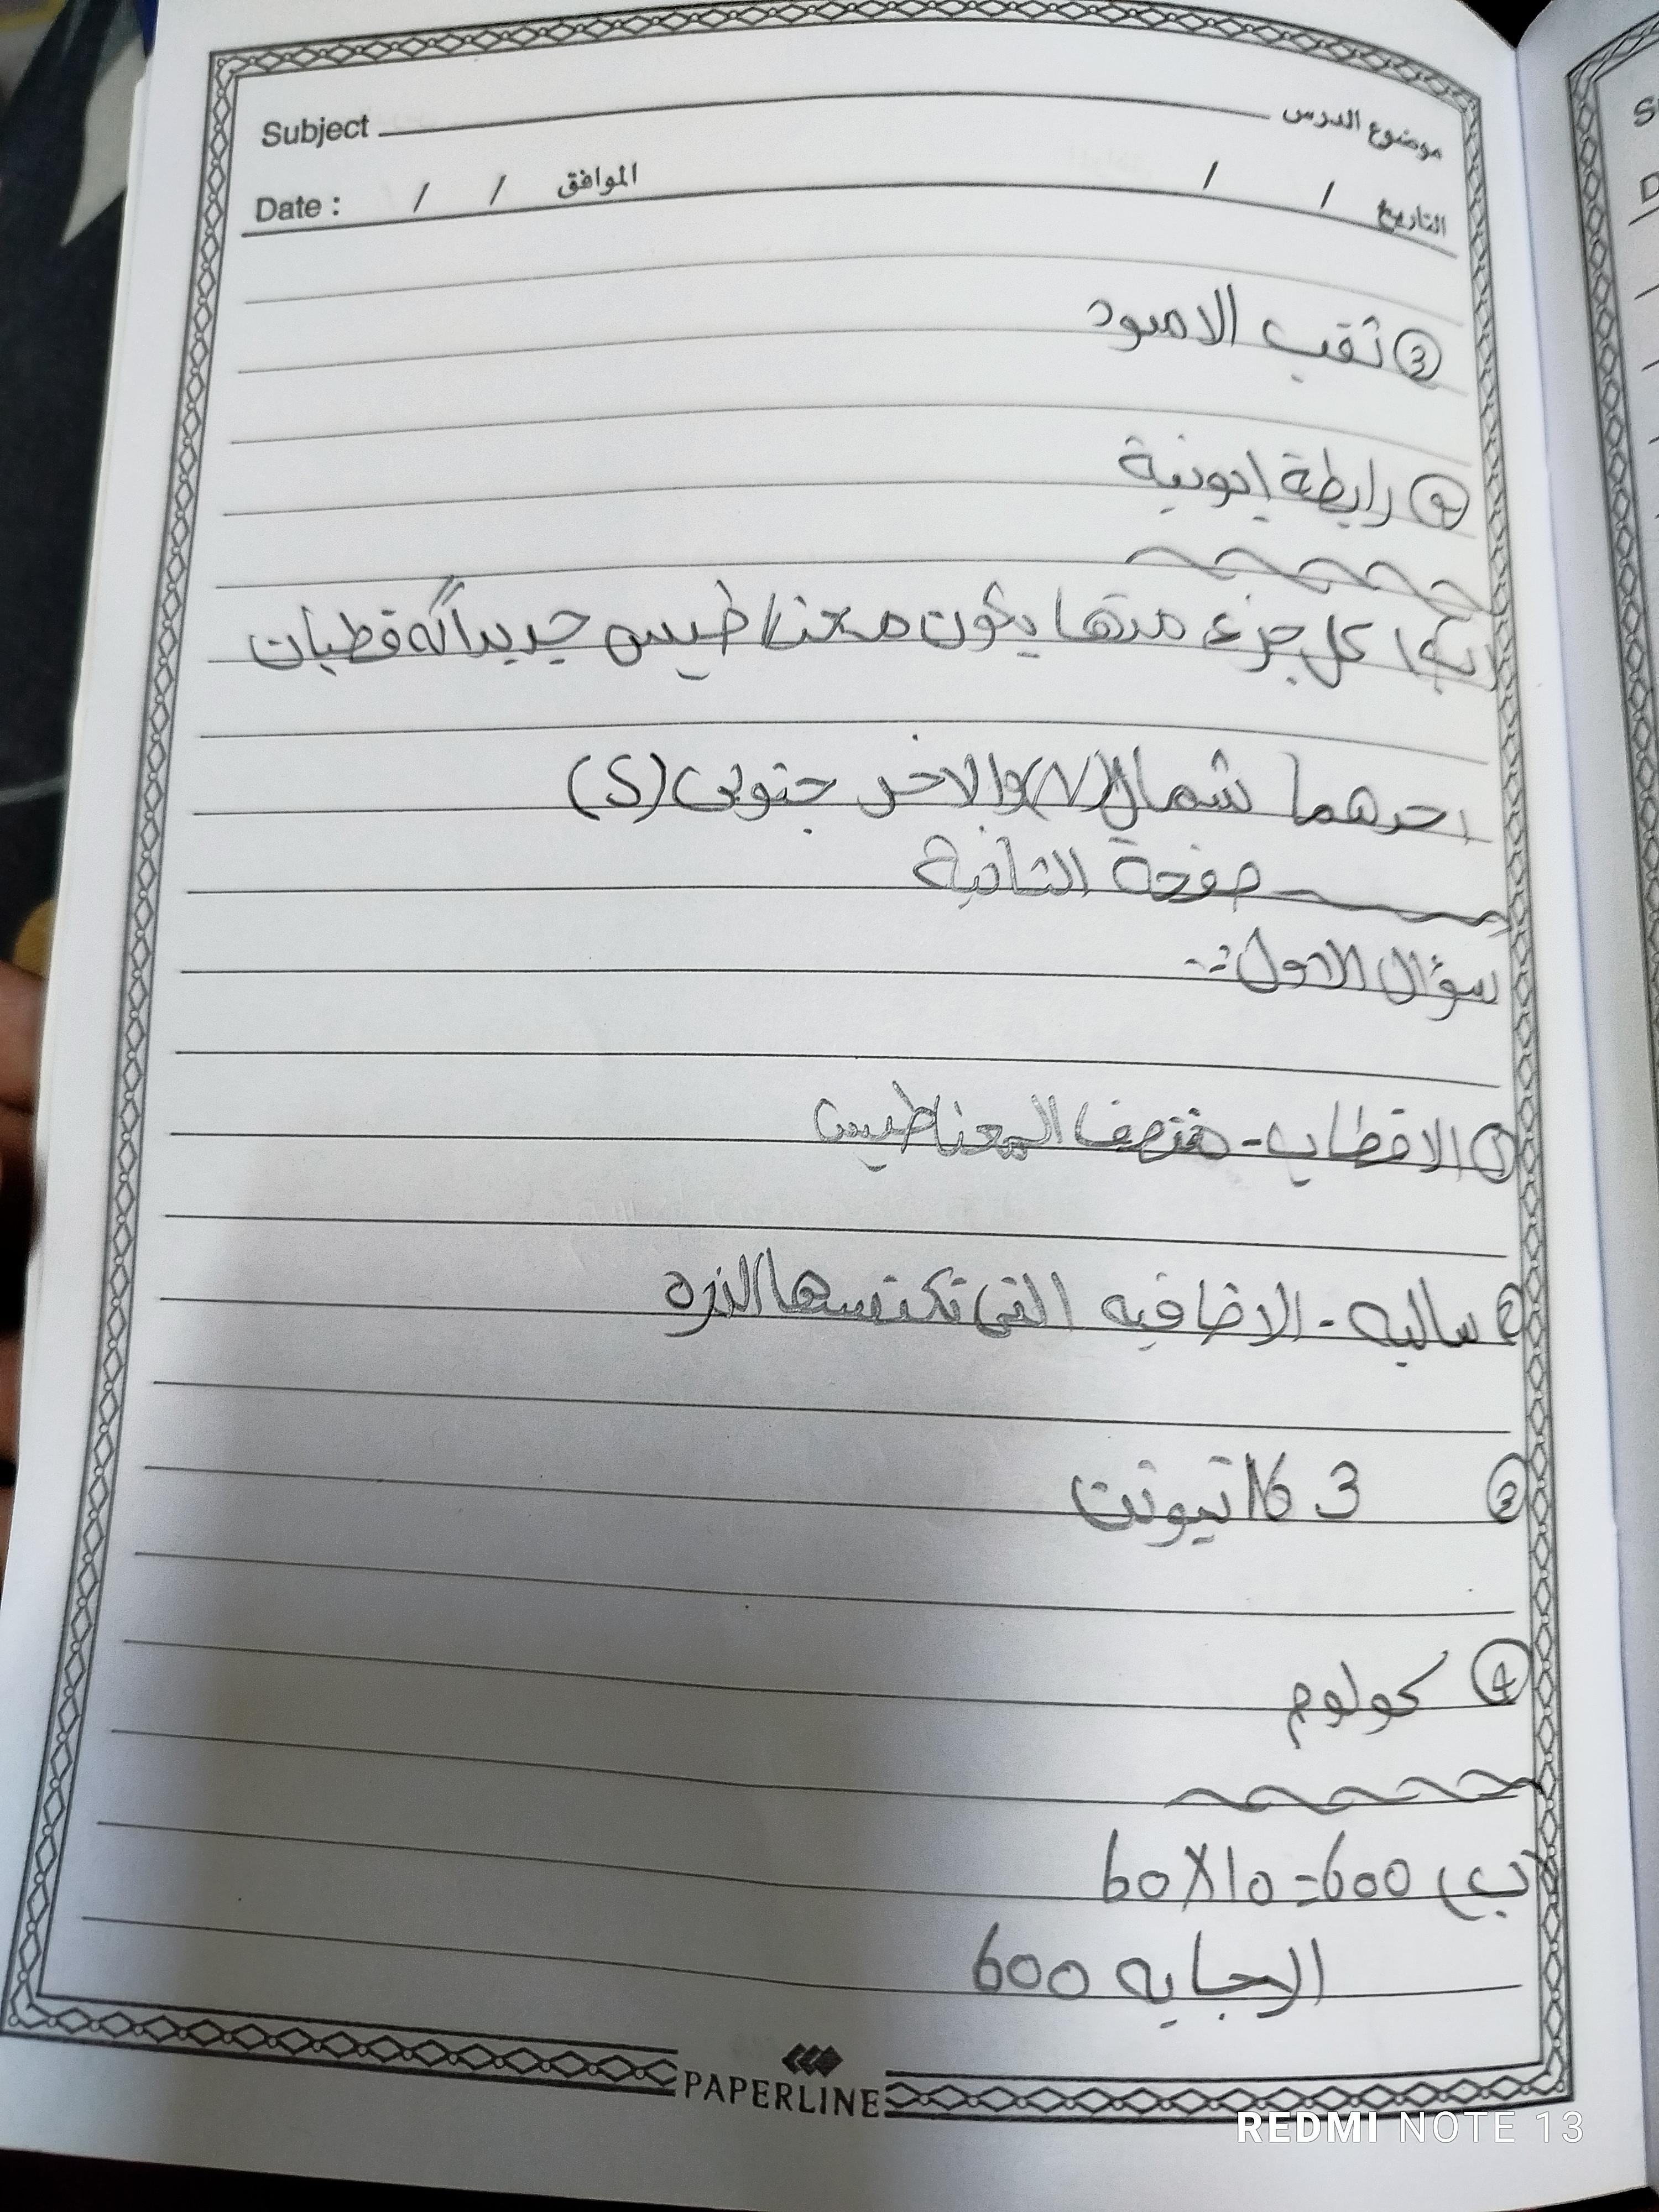 Subject موضوع الدرس
Date : / / الموافق / / التاريخ
③ ثقب الاسود
④ رابطة ايونية
(ب) كل جزء منها يكون مغناطيس جديداً له قطبان
احدهما شمالي (N) والاخر جنوبي (S)
صفحة الثانية
سؤال الاول :-
① الاقطاب - منتصف المغناطيس
② سالبه - الاضافيه التي تكتسبها الذره
③ 3 كاتيونت
④ كولوم
(ب) 60X10=600
الاجابه 600
PAPERLINE
REDMI NOTE 13